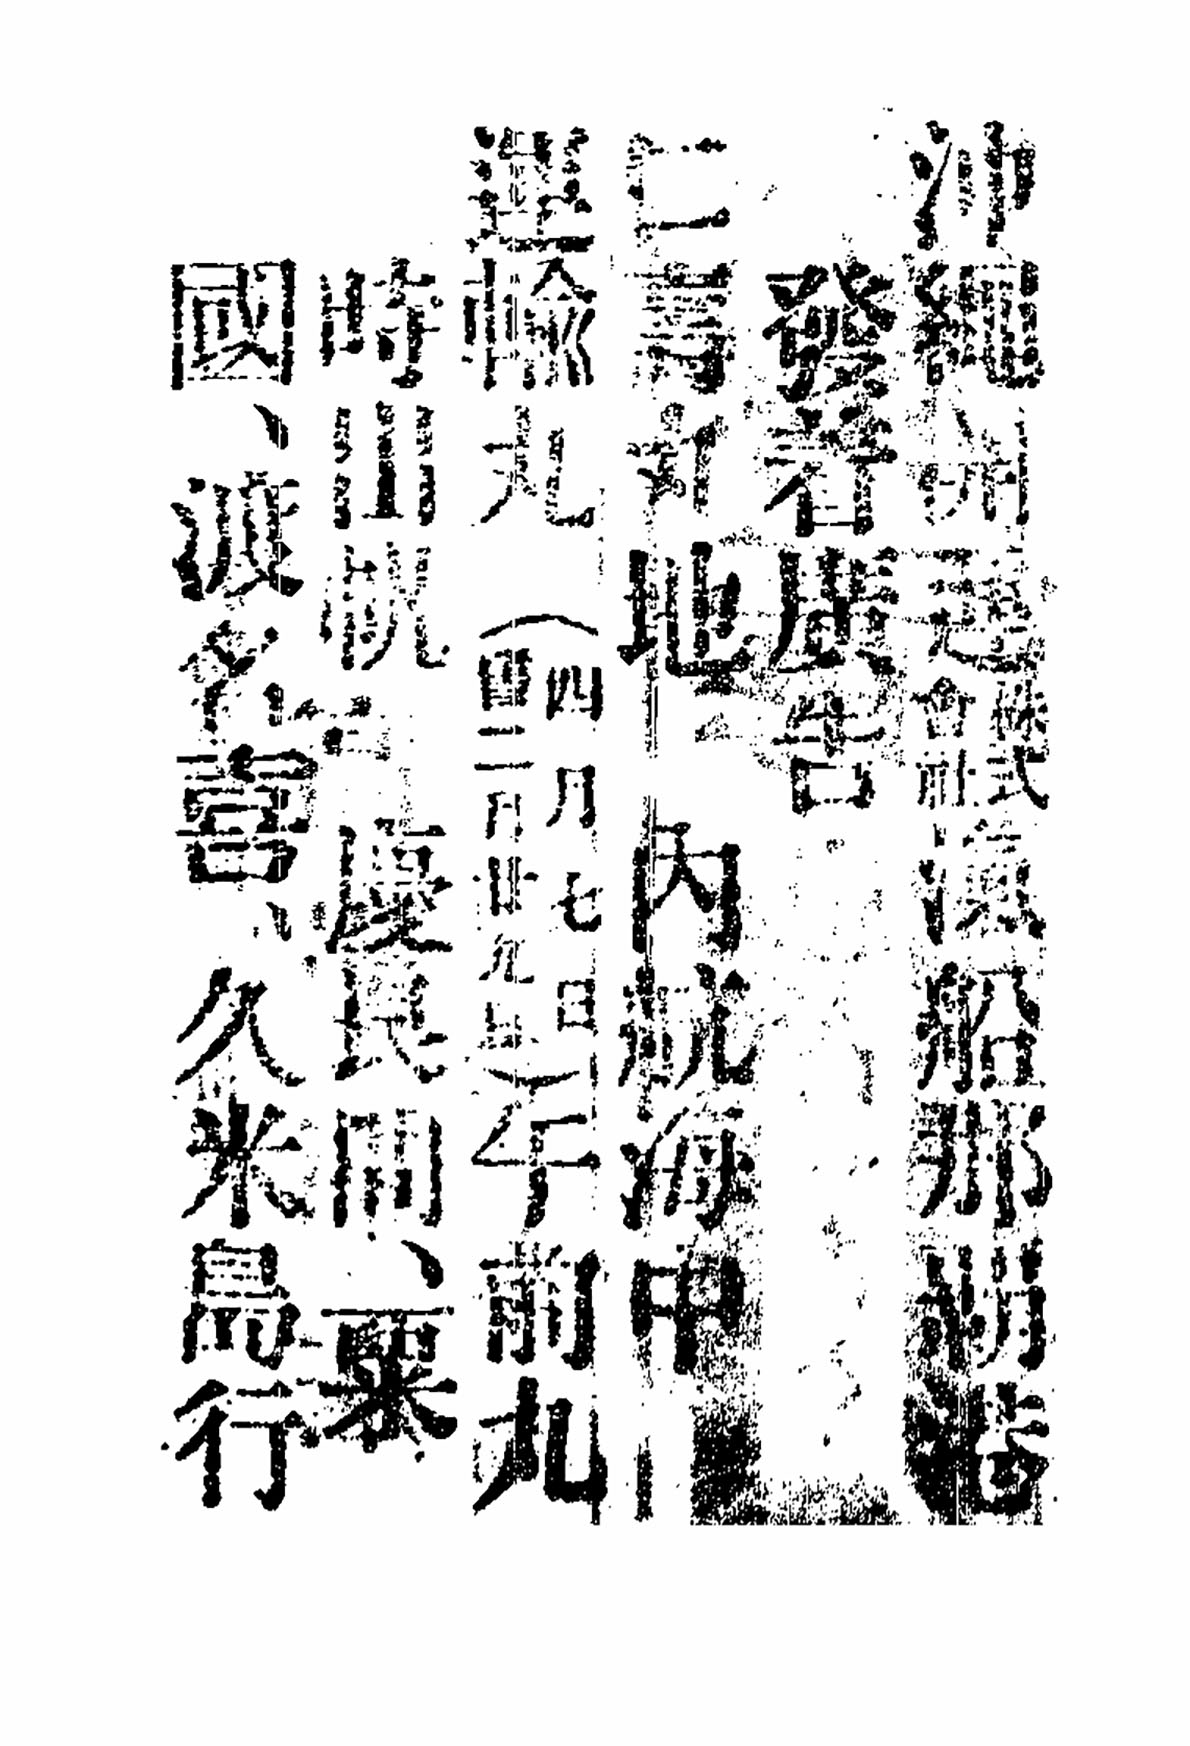 沖繩開運株式會社滊船那覇港
發着廣告
仁壽 地 内航海中
運輸丸(四月七日舊二月廿九日)午前九
時出帆 慶良間、粟
國、渡名喜、久米島行